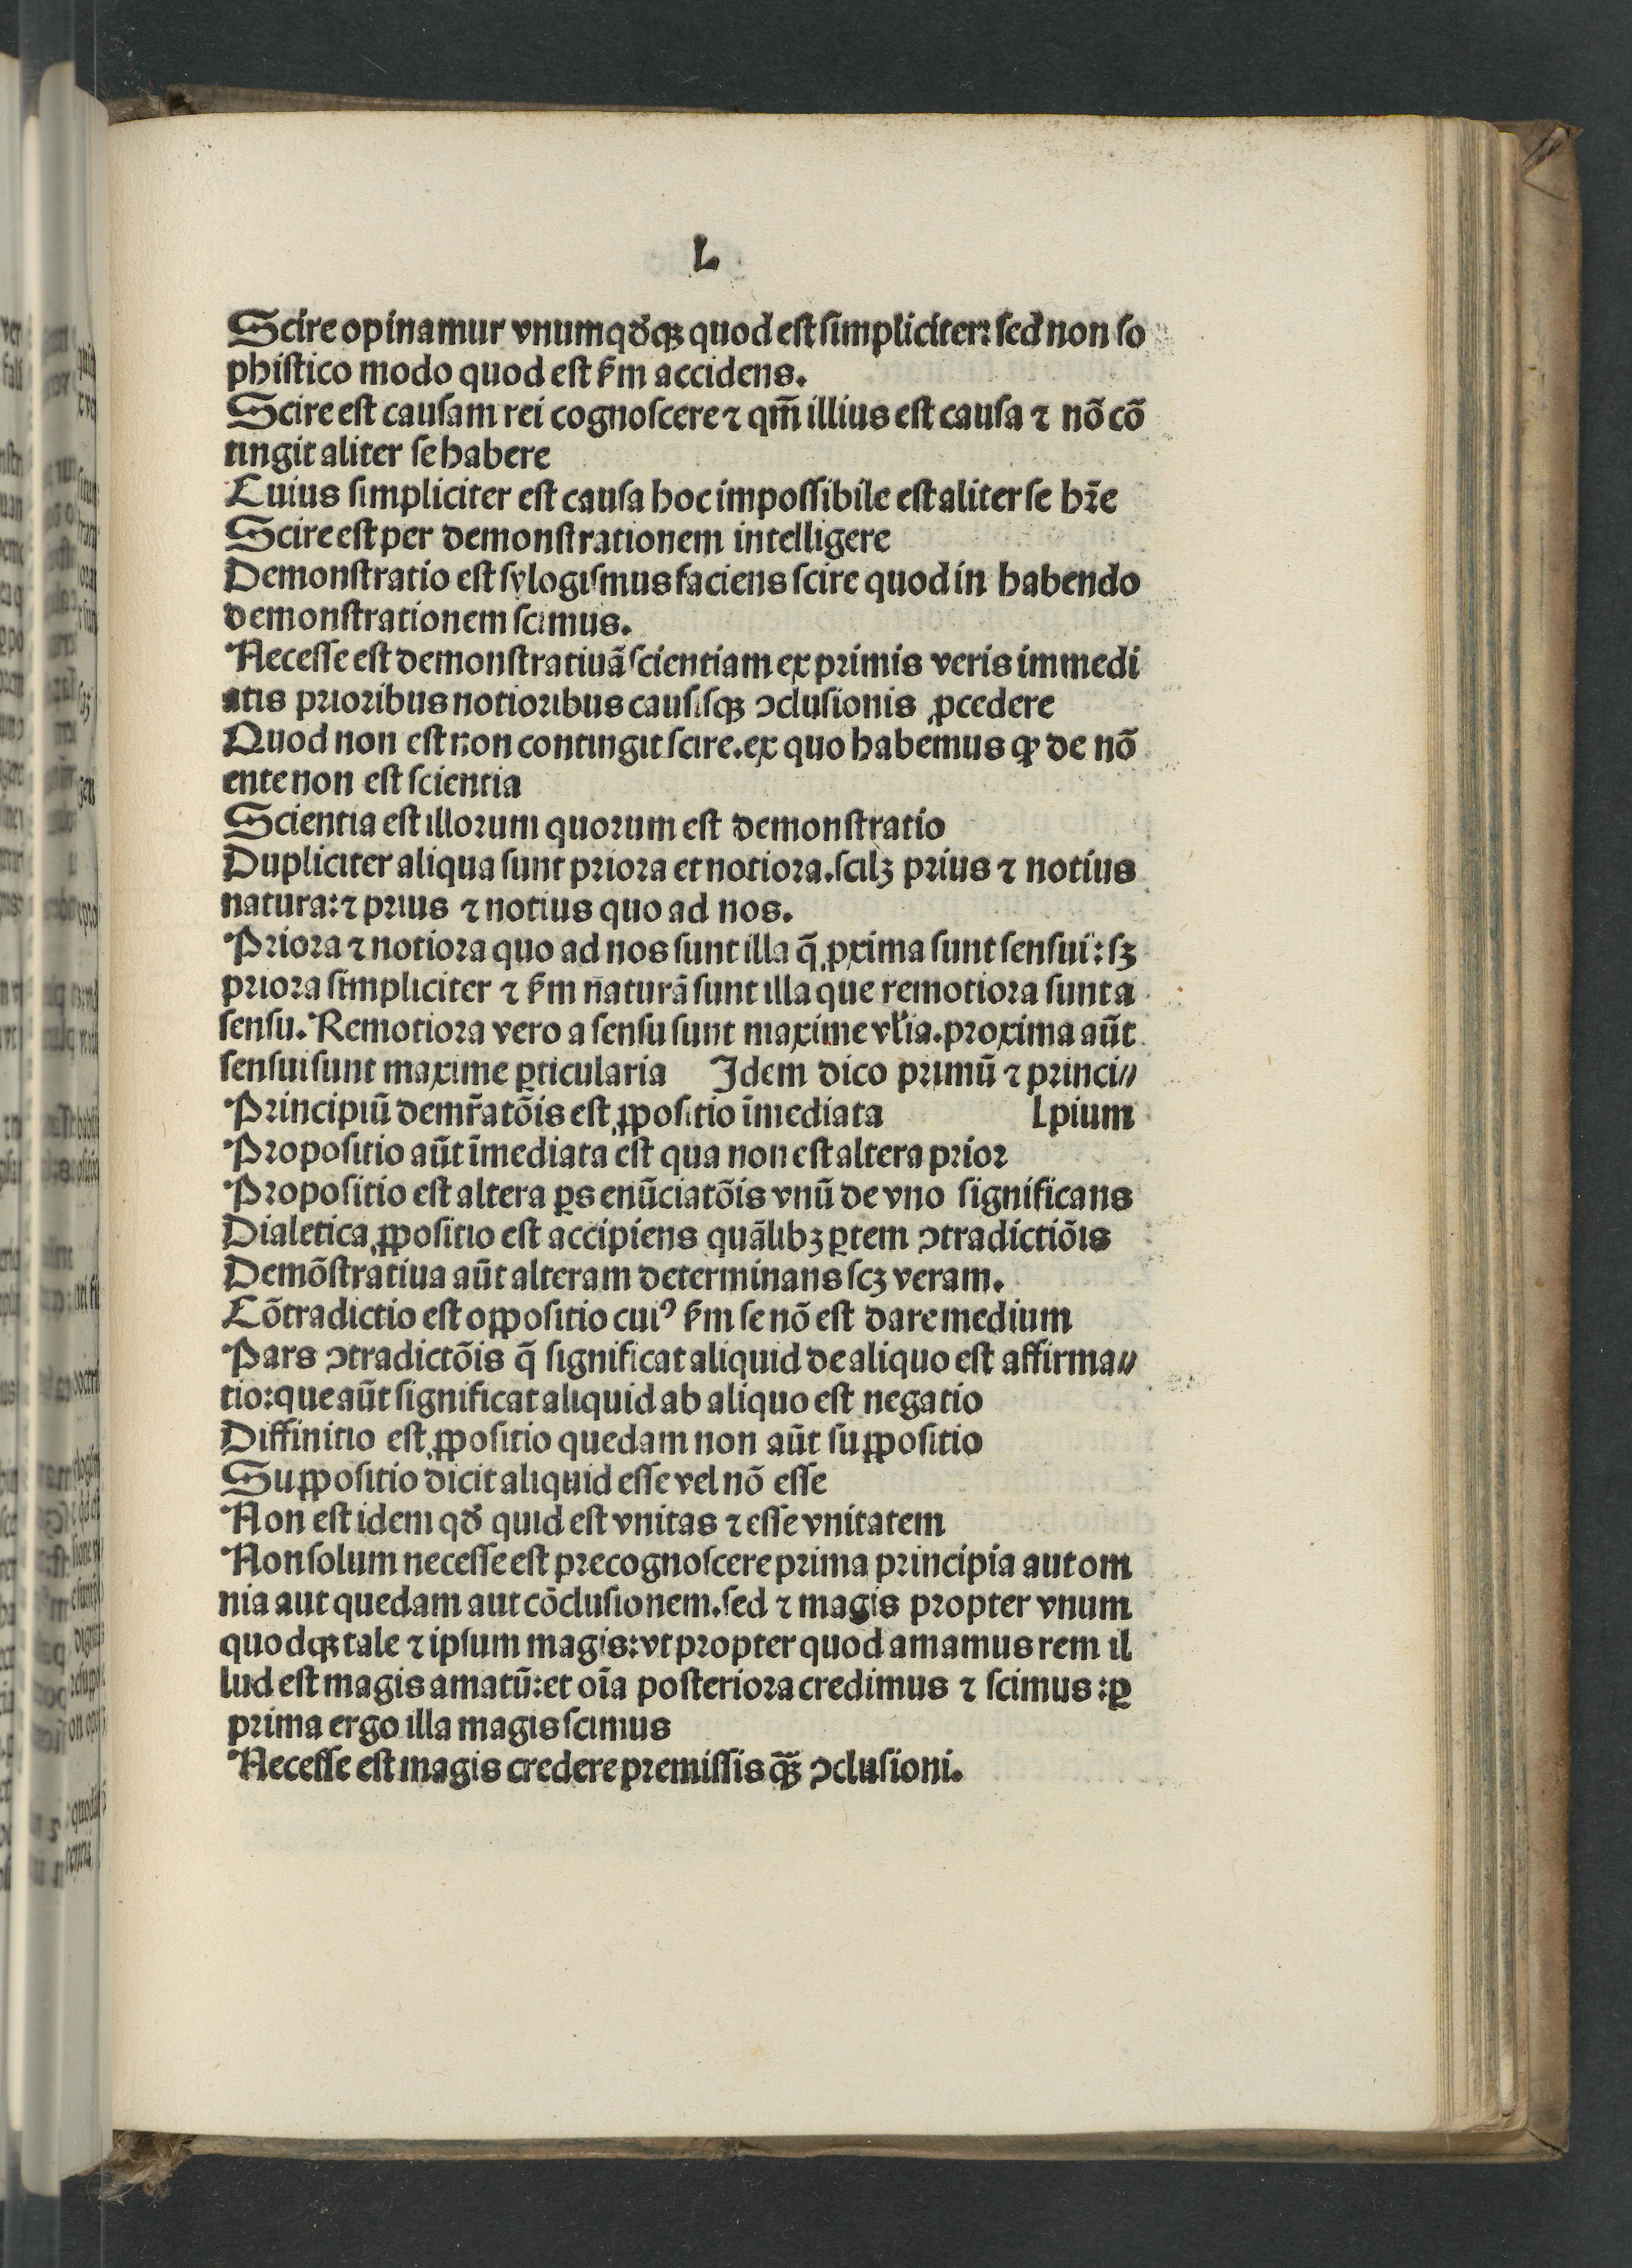 L
Scire opinamur vnumqđqꝫ quod est simpliciter: sed non so
phistico modo quod est ẜm accidens.
Scire est causam rei cognoscere ⁊ qm̄ illius est causa ⁊ nō cō
tingit aliter se habere
Cuius simpliciter est causa hoc impossibile est aliter se hr̄e
Scire est per demonstrationem intelligere
Demonstratio est sylogismus faciens scire quod in habendo
demonstrationem scimus.
Necesse est demonstratiuā scientiam ex primis veris immedi
atis prioribus notioribus causisqꝫ ↄclusionis ꝓcedere
Quod non est non contingit scire. ex quo habemus ꝙ de nō
ente non est scientia
Scientia est illorum quorum est demonstratio
Dupliciter aliqua sunt priora et notiora. scilꝫ prius ⁊ notius
natura: ⁊ prius ⁊ notius quo ad nos.
Priora ⁊ notiora quo ad nos sunt illa q̄ ꝓxima sunt sensui: sꝫ
priora simpliciter ⁊ ẜm naturā sunt illa que remotiora sunt a
sensu. Remotiora vero a sensu sunt maxime vl̓ia. proxima aūt
sensui sunt maxime ꝑticularia Idem dico primū ⁊ princi//
Principiū demr̄atōis est ꝓpositio īmediata [pium
Propositio aūt īmediata est qua non est altera prior
Propositio est altera ꝑs enūciatōis vnū de vno significans
Dialetica ꝓpositio est accipiens quālibꝫ ꝑtem ↄtradictiōis
Demōstratiua aūt alteram determinans scꝫ veram.
Cōtradictio est oppositio cuiꝰ ẜm se nō est dare medium
Pars ↄtradictōis q̄ significat aliquid de aliquo est affirma//
tio: que aūt significat aliquid ab aliquo est negatio
Diffinitio est ꝓpositio quedam non aūt suppositio
Suppositio dicit aliquid esse vel nō esse
Non est idem qđ quid est vnitas ⁊ esse vnitatem
Non solum necesse est precognoscere prima principia aut om
nia aut quedam aut cōclusionem. sed ⁊ magis propter vnum
quodqꝫ tale ⁊ ipsum magis: vt propter quod amamus rem il
lud est magis amatū: et oīa posteriora credimus ⁊ scimus: ꝑ
prima ergo illa magis scimus
Necesse est magis credere premissis q̄ꝫ ↄclusioni.